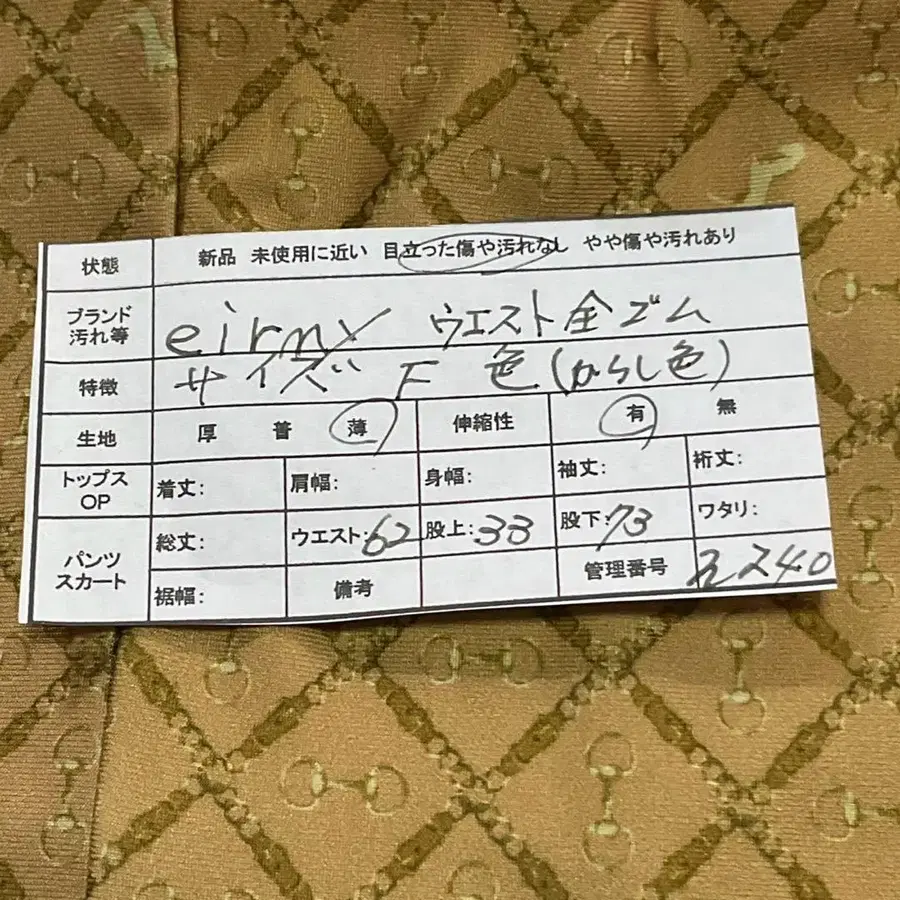 状態 新品 未使用に近い 目立った傷や汚れなし やや傷や汚れあり
ブランド 汚れ等 eirmy ウエスト全ゴム
特徴 サイズ F 色(からし色)
生地 厚 普 薄 伸縮性 有 無
トップス OP 着丈: 肩幅: 身幅: 袖丈: 裄丈:
パンツ スカート 総丈: ウエスト:62 股上:33 股下:73 ワタリ:
裾幅: 備考 管理番号 2240